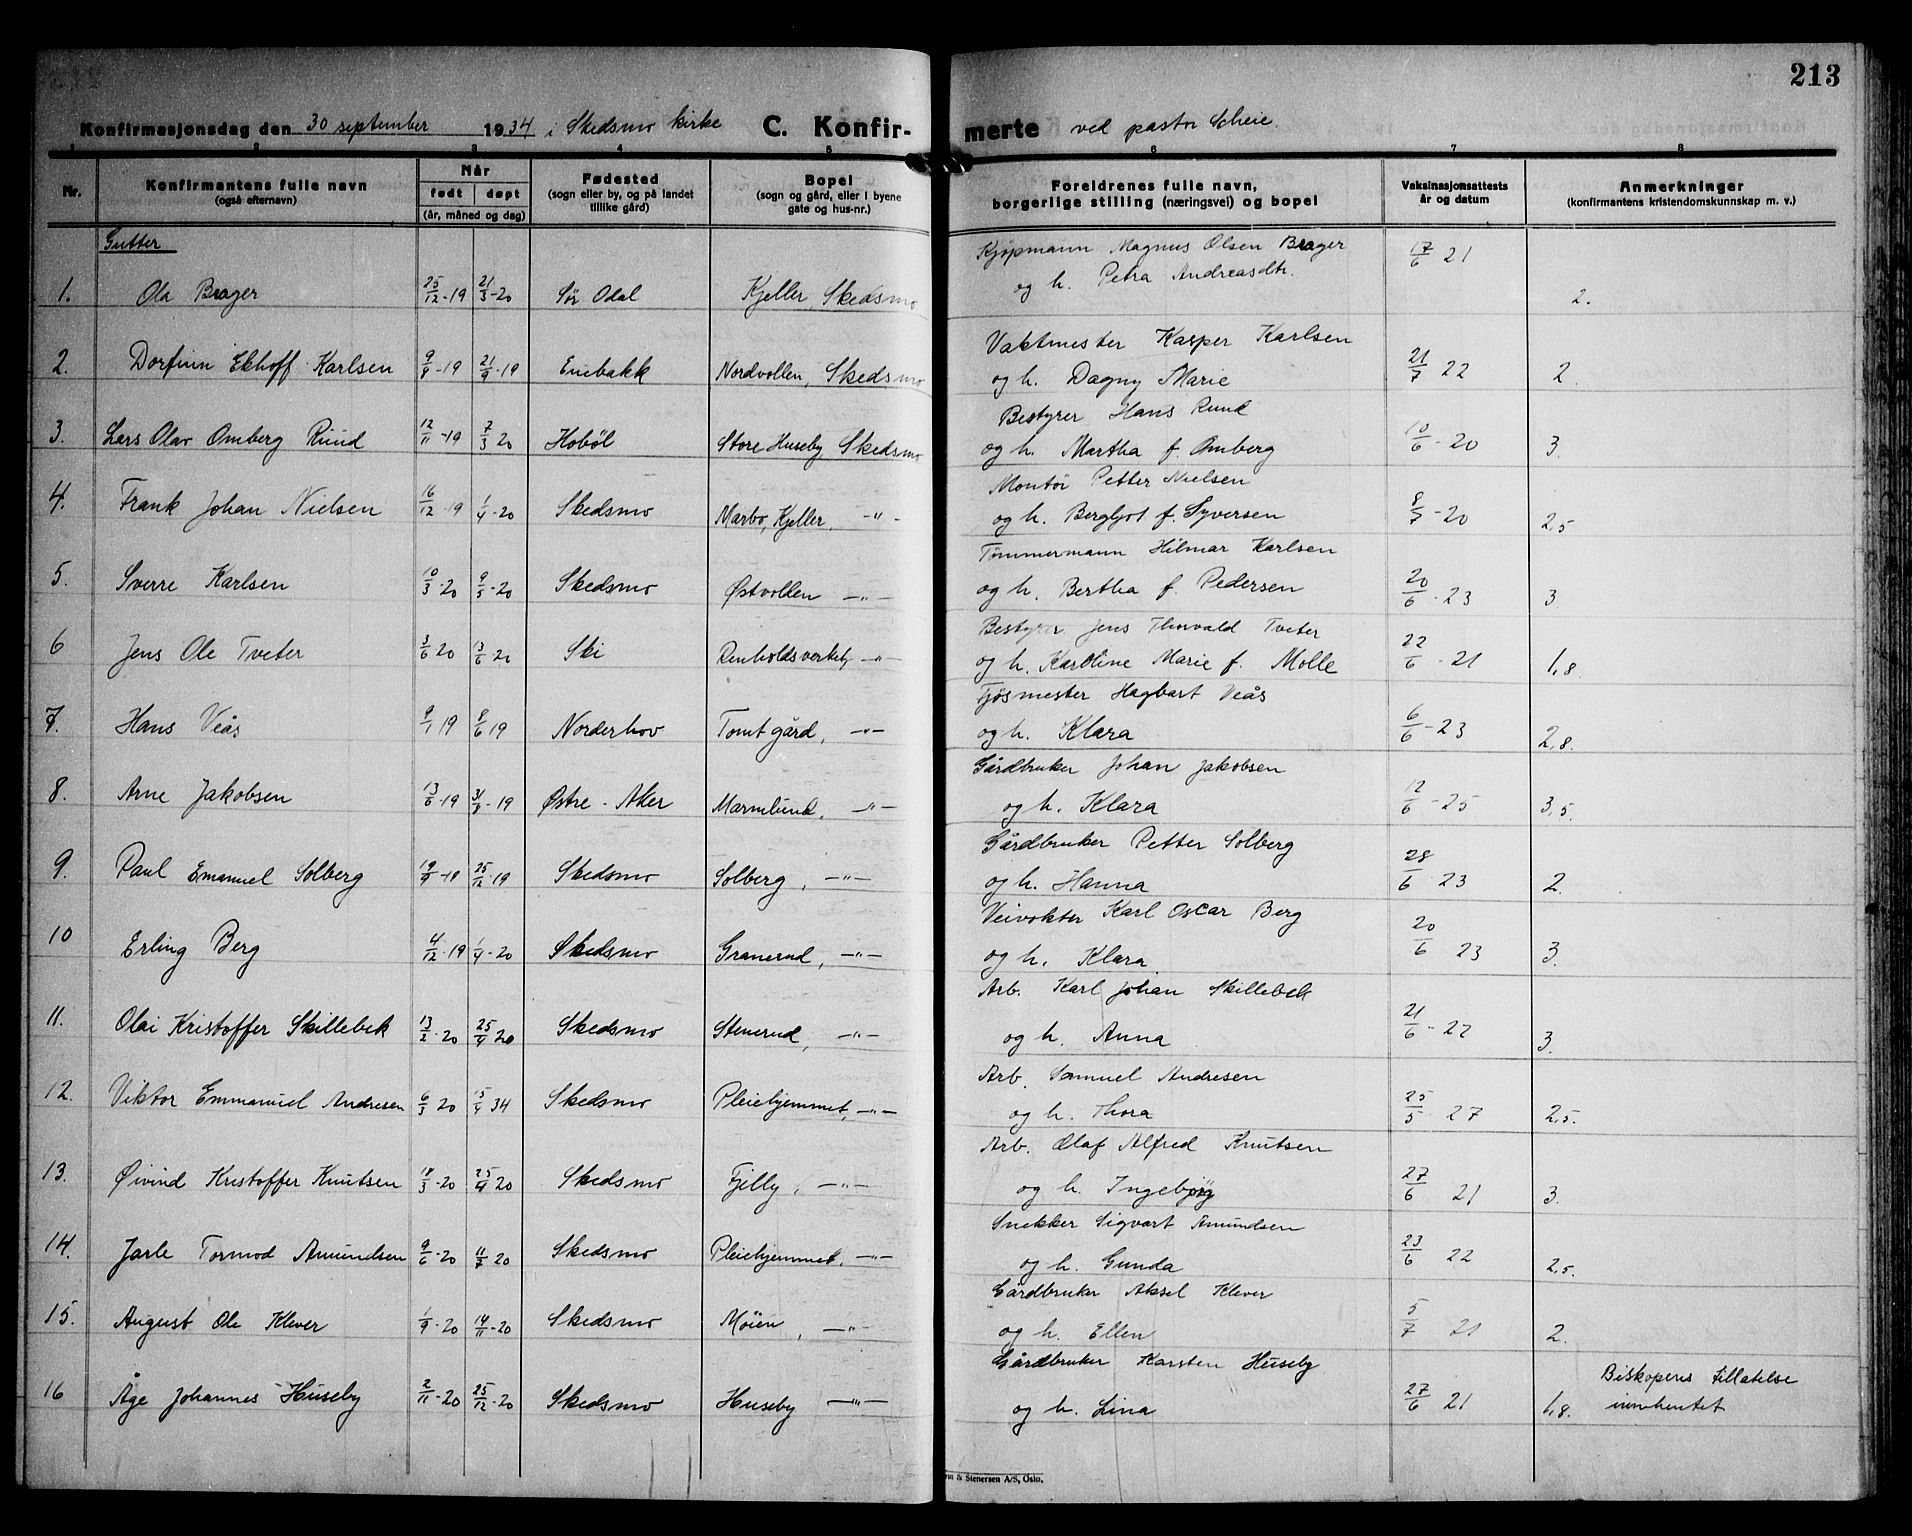 213
Konfirmasjonsdag den 30 september 1934 i Skedsmo kirke C. Konfir- merte ved pastor Scheie.
1 2 3 4 5 6 7 8
Nr. Konfirmantens fulle navn (også efternavn) Når født døpt (år, måned og dag) Fødested (sogn eller by, og på landet tillike gård) Bopel (sogn og gård, eller i byene gate og hus-nr.) Foreldrenes fulle navn, borgerlige stilling (næringsvei) og bopel Vaksinasjonsattests år og datum Anmerkninger (konfirmantens kristendomskunnskap m. v.)
Gutter
Kjøpmann Magnus Olsen Brager
1. Ola Brager 25/12-19 21/3-20 Sør Odal Kjeller, Skedsmo og h. Petra Andreasdtr. 17/6 21 2.
Vaktmester Kasper Karlsen
2. Dorfinn Ekhoff Karlsen 9/8-19 21/9-19 Enebakk Nordvollen, Skedsmo og h. Dagny Marie 21/7 22 2.
Bestyrer Hans Ruud
3. Lars Olav Omberg Ruud 12/11-19 7/3 20 Hobøl Store Huseby Skedsmo og h. Martha f. Omberg 10/6-20 3.
Montør Petter Nielsen
4. Frank Johan Nielsen 16/12-19 1/4-20 Skedsmo Marbo, Kjeller, -"- og h. Bergljot f. Syversen 8/7-20 2,5
Tømmermann Hilmar Karlsen
5. Sverre Karlsen 10/3-20 9/5-20 Skedsmo Østvolden -"- og h. Bertha f. Pedersen 20/6-23 3
Bestyrer Jens Thorvald Tveter
6 Jens Ole Tveter 3/6 20 13/6-20 Ski Renholdsverket, -"- og h. Karoline Marie f. Molle 22/6-21 1,8.
Fjøsmester Hagbart Veås
7. Hans Veås 9/1 19 8/6 19 Norderhov Tomt gård, -"- og h. Klara 6/6-23 2,8.
Gårdbruker Johan Jakobsen
8. Arne Jakobsen 13/6-19 31/8-19 Østre-Aker Marmlund, -"- og h. Klara 12/6-25 3,5.
Gårdbruker Petter Solberg
9. Paul Emanuel Solberg 25/12-19 Skedsmo Solberg, -"- og h. Hanna 28/6 23 2.
Veivokter Karl Oscar Berg
10 Erling Berg 4/12-19 1/4-20 Skedsmo Granerud, -"- og h. Klara 20/6 23 3.
Arb. Karl Johan Skillebek
11. Olai Kristoffer Skillebek 13/2-20 25/4 20 Skedsmo Stenerud, -"- og h. Anna 21/6-22 3.
Arb. Samuel Andresen
12. Viktor Emmanuel Andresen 6/3 20 15/4 34 Skedsmo Pleiehjemmet, -"- og h. Thora 25/5 27 2,5.
Arb. Olaf Alfred Knutsen
13. Øivind Kristoffer Knutsen 18/3-20 25/4 20 Skedsmo Fjelly, -"- og h. Ingebjørg 27/6 21 3.
Snekker Sigvart Amundsen
14. Jarle Tormod Amundsen 9/6-20 11/7 20 Skedsmo Pleiehjemmet, -"- og h. Gunda 23/6 22 2,5.
Gårdbruker Aksel Klever
15. August Ole Klever 1/9-20 14/11-20 Skedsmo Møien, -"- og h. Ellen 5/7 21 2.
Gårdbruker Karsten Huseby Biskopens tillatelse
16 Åge Johannes Huseby 2/11-20 25/12-20 Skedsmo Huseby -"- og h. Lina 27/6 21 1,8. innhentet
& Stenersen A/S, Oslo.